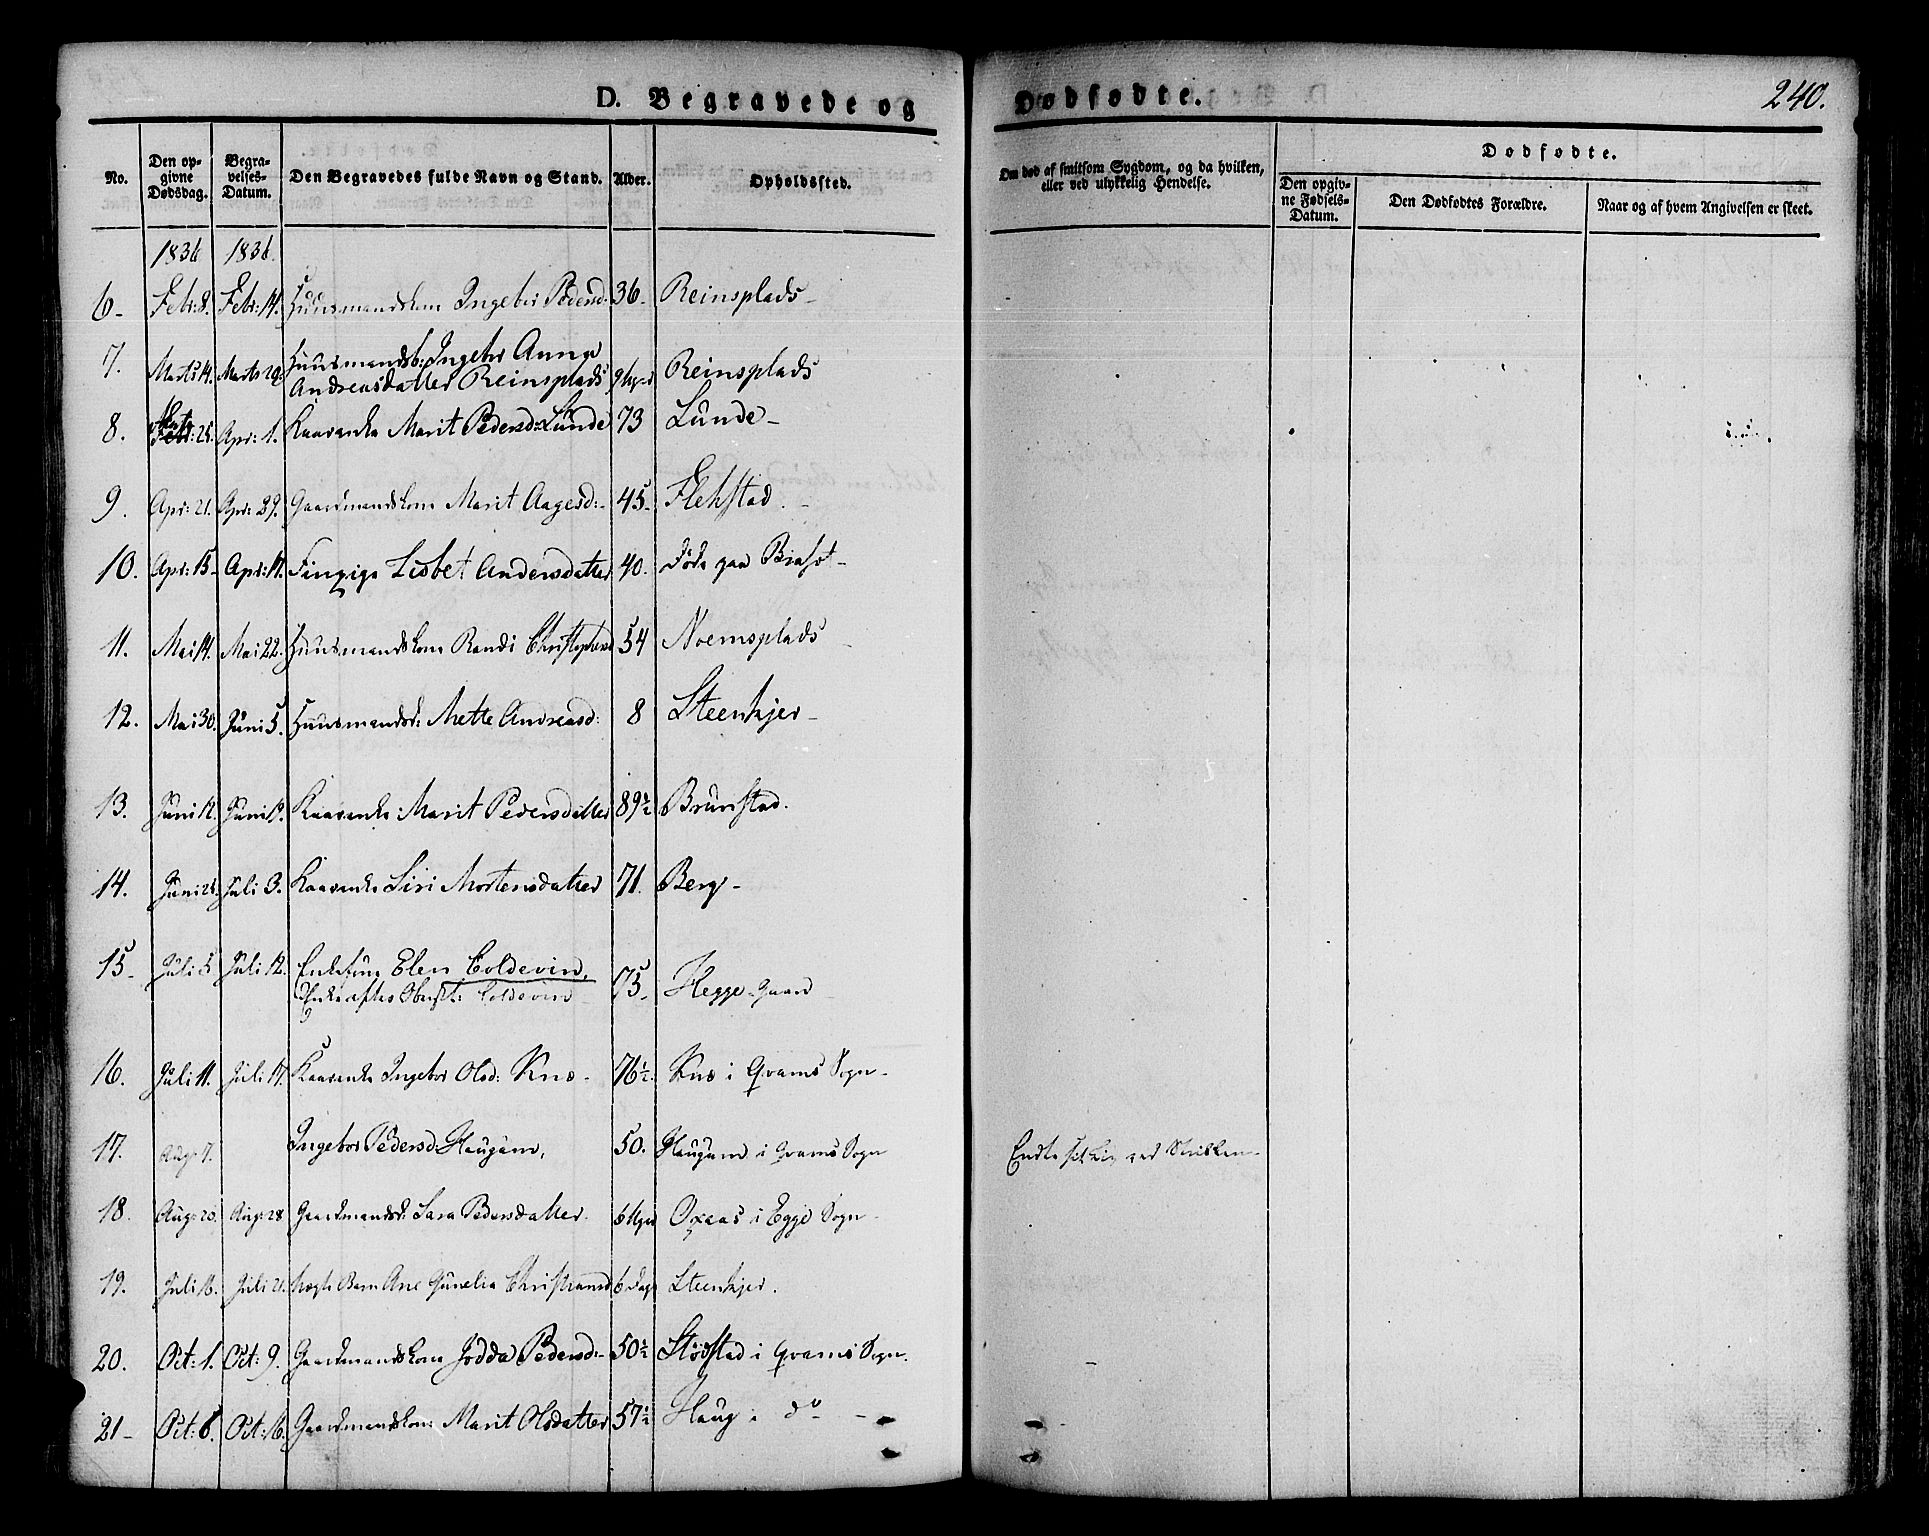 D. Begravede og Dødfødte.
240.
No.
Den op-
givne
Dødsdag.
Begra-
velses-
Datum.
Den Begravedes fulde Navn og Stand.
Alder.
Opholdssted.
Om død af smitsom Sygdom, og da hvilken,
eller ved ulykkelig Hendelse.
Dødfødte.
Den opgiv-
ne Fødsels-
Datum.
Den Dødfødtes Forældre.
Naar og af hvem Angivelsen er skeet.
1836 1836.
6- Febr: 8. Febr: 14. Huusmandskone Ingebor Pedersd: 36- Reinsplads-
7. Marts 14. Marts 29. Huusmandsb: Ingebor Anna
Andreasdatter Reinsplads 9 Uger Reinsplads
8. 25. Apr: 1. Kaarenke Marit Pedersd: Lunde 73 Lunde-
9. Apr: 21. Apr: 29. Gaardmandskone Marit Aagesd:- 45- Flekstad.
10. Apr: 15- Apr: 17. Lisbet Andersdatter 40. døde paa
11. Mai 14. Mai 22. Huusmandskone Randi 54 Noemsplads
12. Mai 30. Juni 5. Huusmandsd: Mette Andreasd: 8 Steenkjer-
13. Juni 12. Juni 19. Kaarenke Marit Pedersdatter 89½ Brunstad.
14. Juni 28. Juli 3. Kaarenke Siri Mortensdatter 71. Berg-
15- Juli 5 Juli 12. Enkefrue Elen Coldevin,
Enke efter Coldevin 75- Hegge-Gaard
16. Juli 11. Juli 17. Kaarenke Ingebor Olsd: Kne- 76½ Kne i Qvams Sogn-
17. Aug: 7. Ingebor Pedersd: Haugum, 50. Haugum i Qvams Sogn Endte sit Liv ved Strikken-
18. Aug: 20. Aug: 28 Gaardmandsd: Sara Pedersdatter. 6 Uger Oxaas i Egge Sogn-
19. Juli 16. Juli 21. Uægte Barn Ane Gunelia Christiansd 6 Dage Steenkjer.
20. Oct: 1. Oct: 9. Gaardmandskone Jodda Pedersd:- 50½ Stødstad i Qvams Sogn.
21- Oct: 8. Oct: 16. Gaardmandskone Marit Olsdatter 57½ Haug i do -